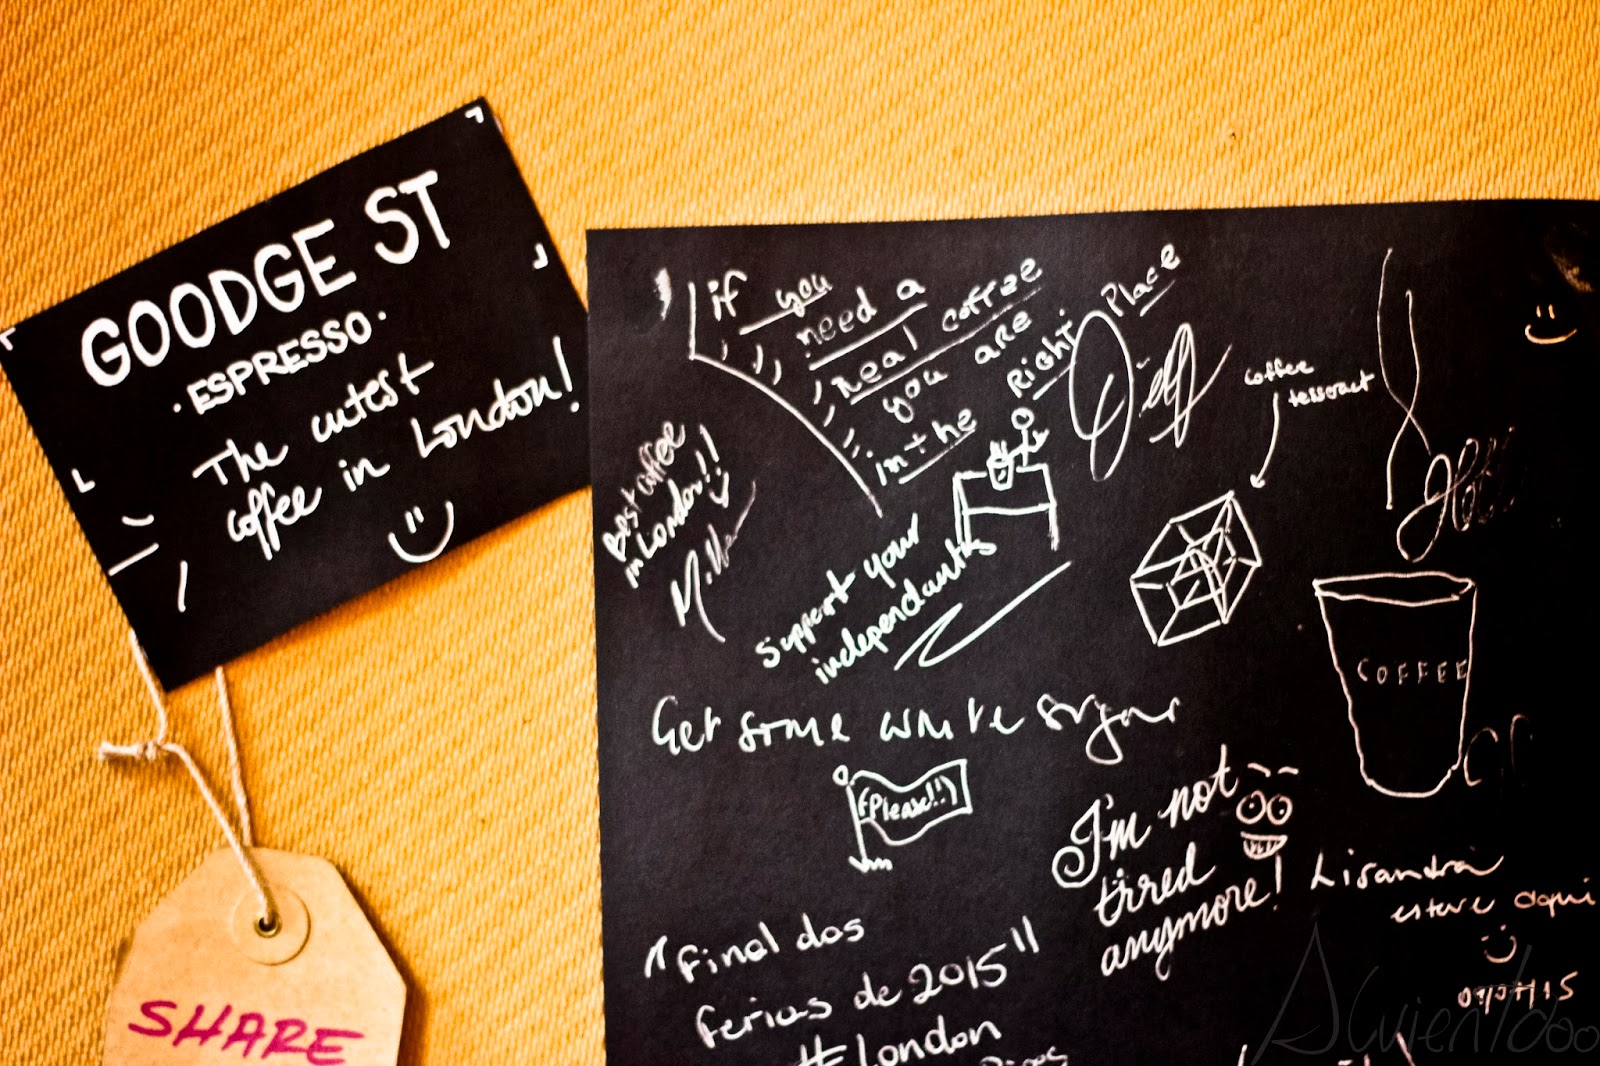 GOODGE ST
· ESPRESSO ·
The cutest
coffee in London!
SHARE
if you
need a
real coffee
you are
in the Right Place
Jeff
Best coffee
in London!!
coffee
tesseract
Support your
independants
COFFEE
Get some white sugar
(Please!!)
I'm not
tired
anymore!
Lisandra
esteve aqui
"Final dos
ferias de 2015"
#London